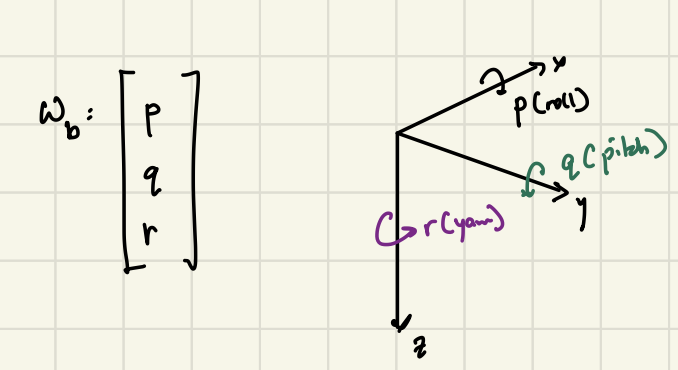 ω_b: [p
q
r]
x
p(roll)
q(pitch)
y
r(yaw)
z